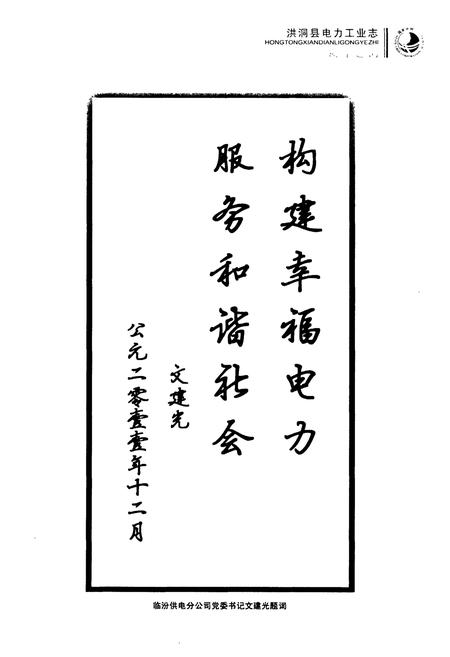 洪洞县电力工业志
HONGTONGXIANDIANLIGONGYEZHI
构建幸福电力
服务和谐社会
文建光
公元二零壹壹年十二月
临汾供电分公司党委书记文建光题词